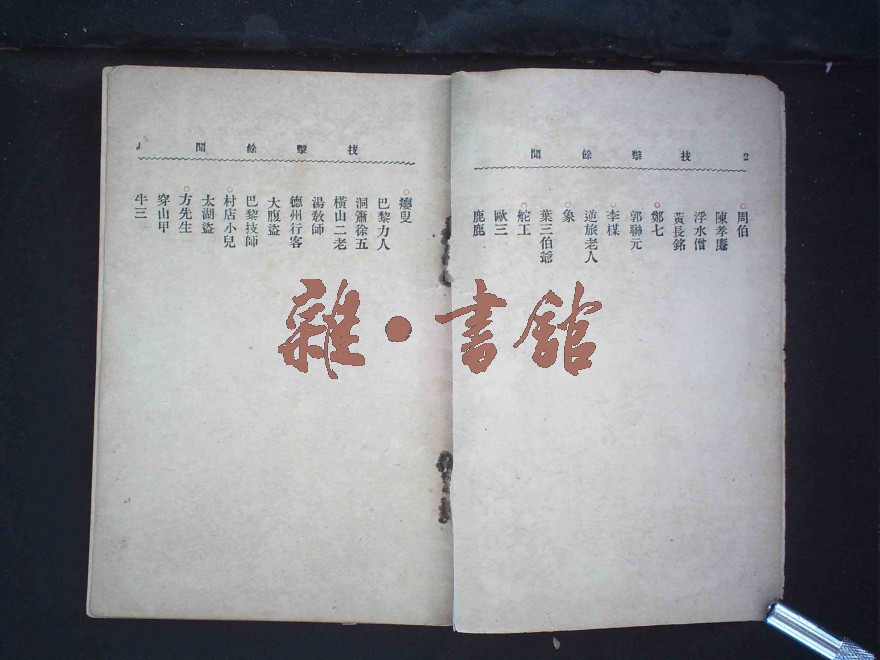 技擊餘聞 2
周伯
陳孝廉
浮水僧
黃長銘
鄭七
郭聯元
李楳
逆旅老人
象
葉三伯爺
舵王
歐三
鹿鹿
技擊餘聞
巴黎力人
洞簫徐五
橫山二老
湯教師
德州行客
大腹盜
巴黎技師
村店小兒
太湖盜
方先生
穿山甲
牛三
雜·書館